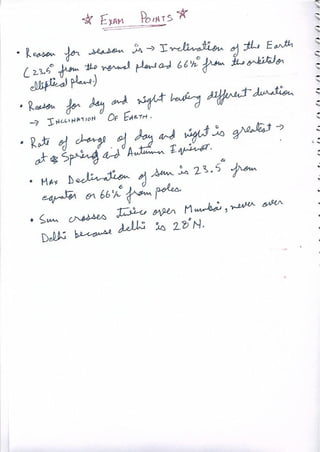 ☆ EXAM POINTS ☆
• Reason for season is → Inclination of the Earth
(23.5° from the normal plane and 66½° from the orbital or
elliptical plane)
• Reason for day and night having different duration
→ INCLINATION OF EARTH.
• Rate of change of day and night is greatest →
at Spring and Autumn Equinox.
• Max Declination of sun is 23.5° from
equator or 66½° from poles
• Sun crosses twice over Mumbai, never over
Delhi because delhi is 28°N.